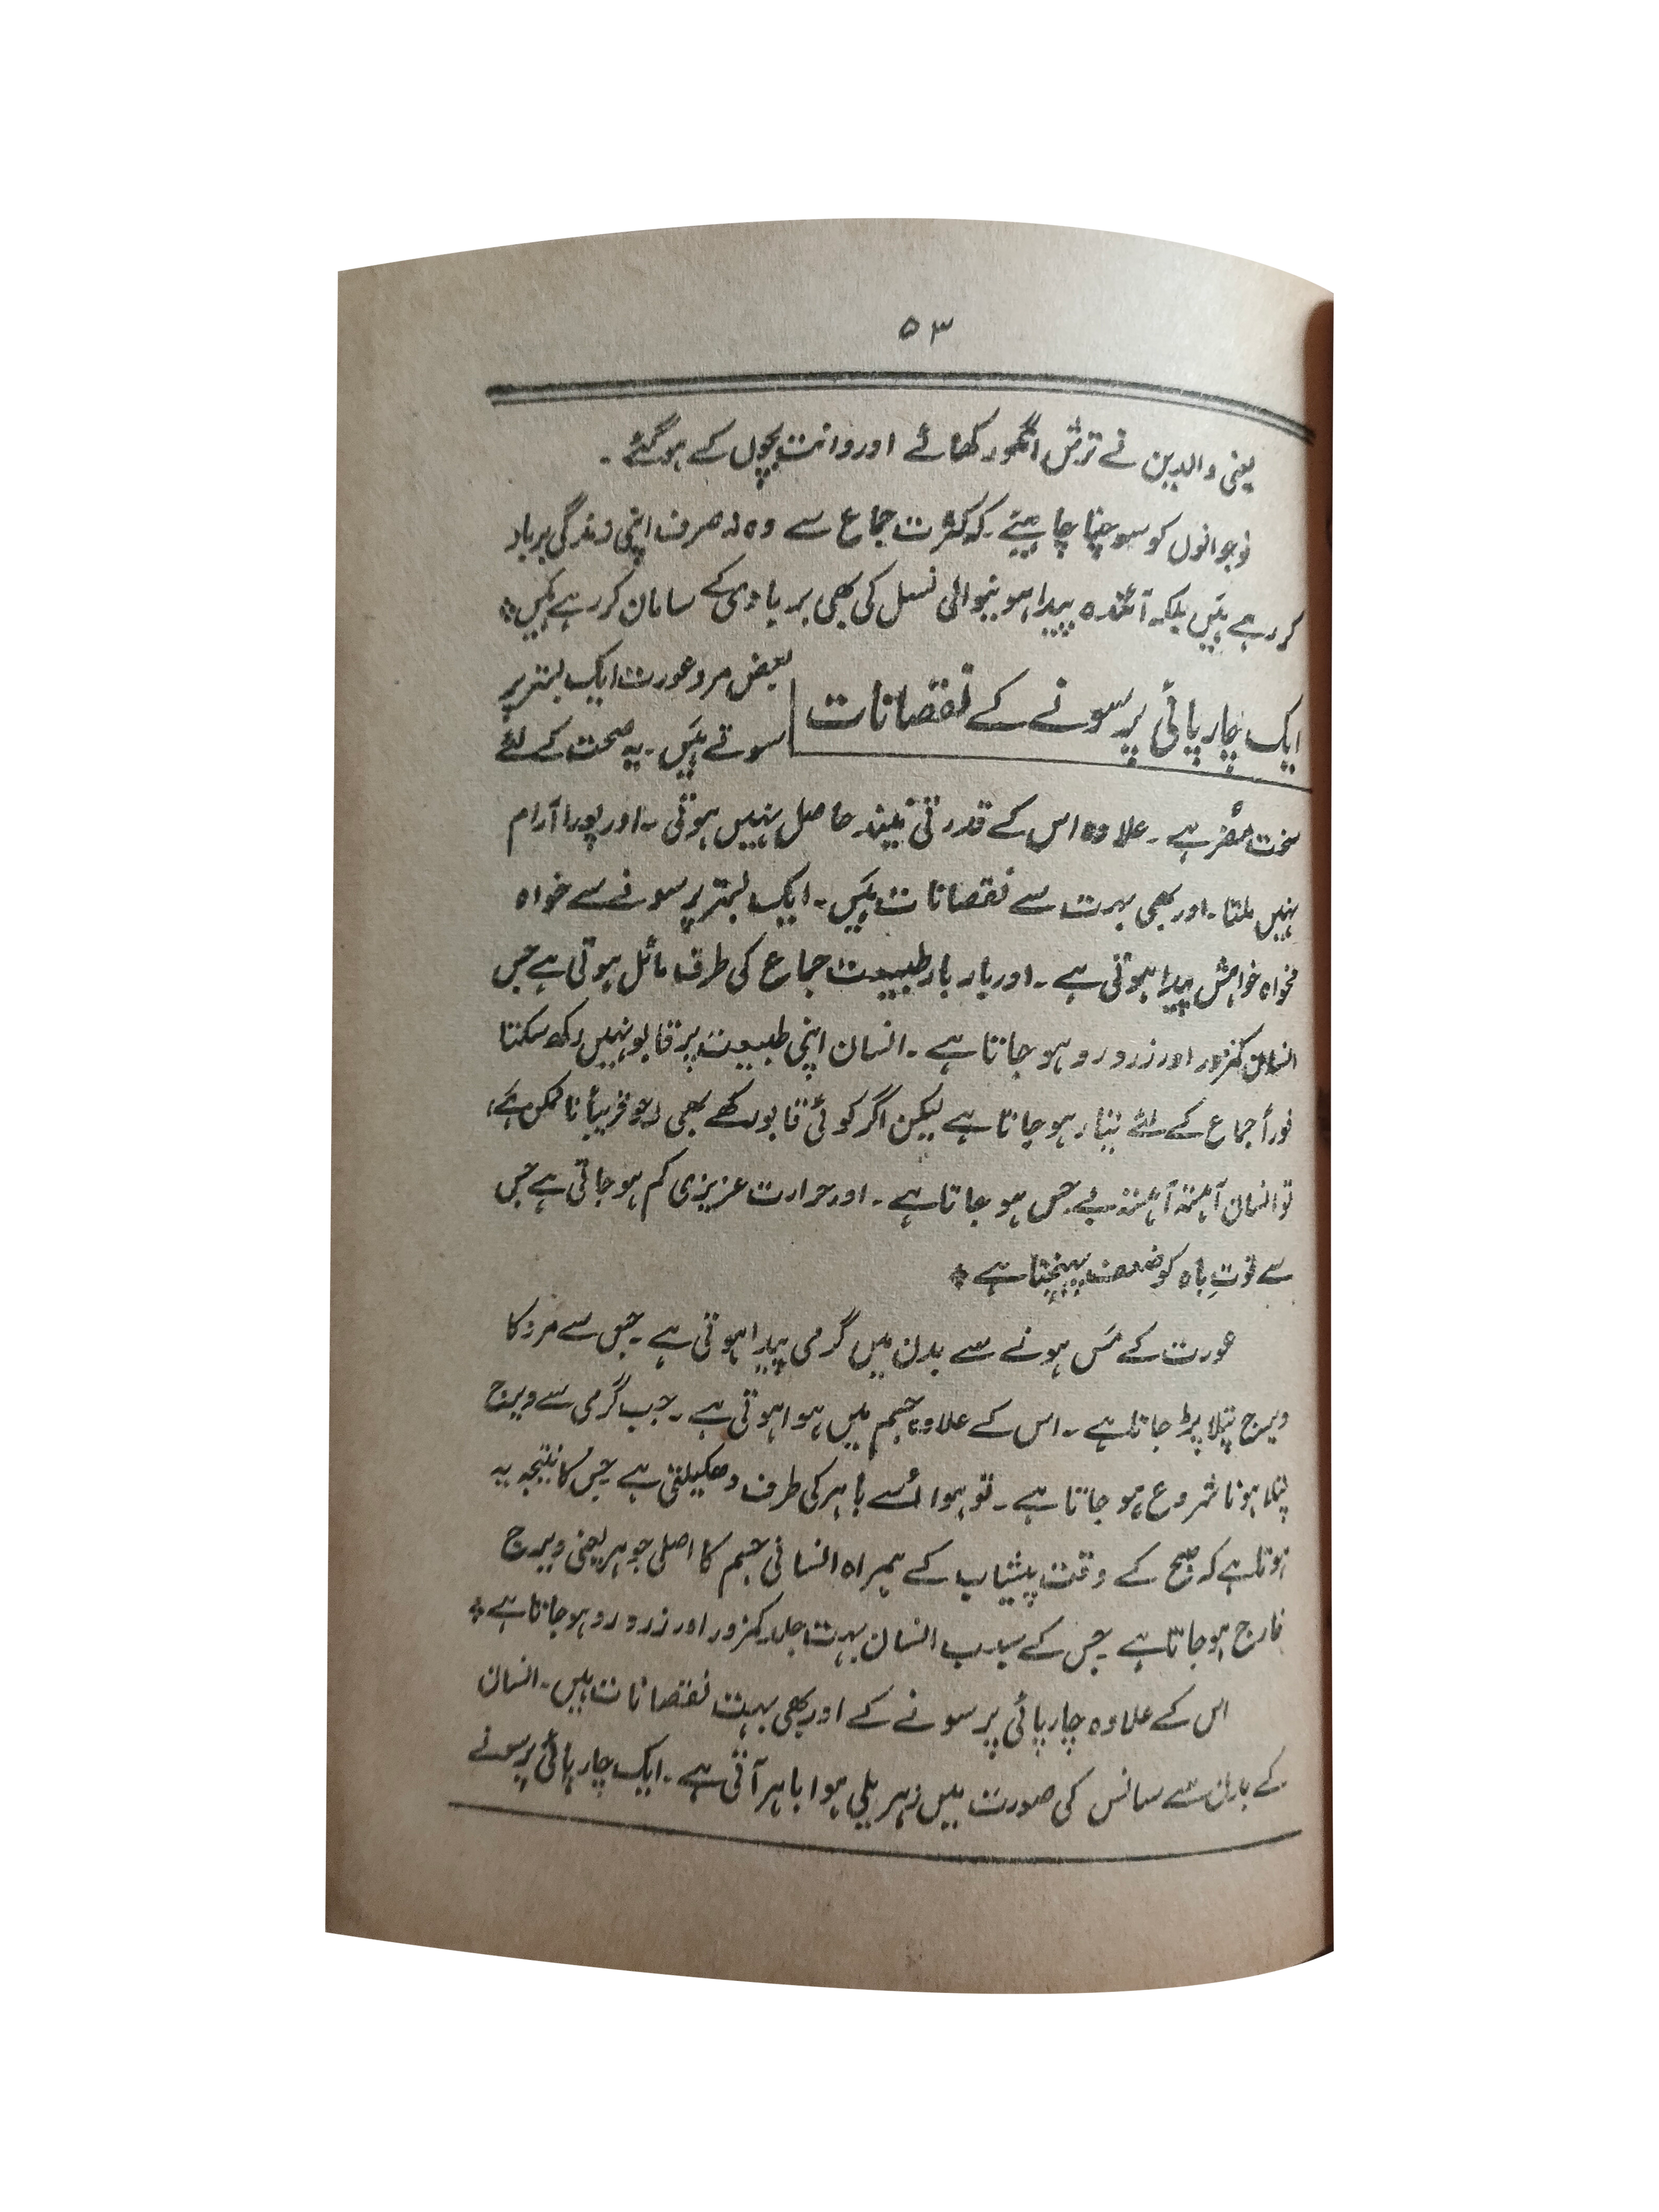 ۵۳
یعنی والدین نے ترش انگور کھائے اور دانت بچوں کے ہوگئے۔
نوجوانوں کو سوچنا چاہیئے۔ کہ کثرت جماع سے وہ نہ صرف اپنی زندگی برباد
کر رہے ہیں بلکہ آئندہ پیدا ہونیوالی نسل کی بھی بربادی کے سامان کر رہے ہیں٭
ایک چارپائی پر سونے کے نقصانات
بعض مرد عورت ایک بستر پر
سوتے ہیں۔ یہ صحت کے لئے
سخت مضر ہے۔ علاوہ اس کے قدرتی نیند حاصل نہیں ہوتی۔ اور پورا آرام
نہیں ملتا۔ اور بھی بہت سے نقصانات ہیں۔ ایک بستر پر سونے سے خواہ
مخواہ خواہش پیدا ہوتی ہے۔ اور بار بار طبیعت جماع کی طرف مائل ہوتی ہے جس
انسان کمزور اور زرد رو ہو جاتا ہے۔ انسان اپنی طبیعت پر قابو نہیں رکھ سکتا
فوراً جماع کے لئے تیار ہو جاتا ہے لیکن اگر کوئی قابو رکھے بھی (جو قریباً ناممکن ہے)
تو انسان آہستہ آہستہ بے حس ہو جاتا ہے۔ اور حرارت عزیزی کم ہو جاتی ہے جس
سے قوتِ باہ کو ضعف پہنچتا ہے٭
عورت کے مَس ہونے سے بدن میں گرمی پیدا ہوتی ہے۔ جس سے مرد کا
ویرج پتلا پڑ جاتا ہے۔ اس کے علاوہ جسم میں ہوا ہوتی ہے۔ جب گرمی سے ویرج
پتلا ہونا شروع ہو جاتا ہے۔ تو ہوا اُسے باہر کی طرف دھکیلتی ہے جس کا نتیجہ یہ
ہوتا ہے کہ صبح کے وقت پیشاب کے ہمراہ انسانی جسم کا اصلی جوہر یعنی ویرج
خارج ہو جاتا ہے جس کے سبب انسان بہت جلد کمزور اور زرد رو ہو جاتا ہے٭
اس کے علاوہ چارپائی پر سونے کے اور بھی بہت نقصانات ہیں۔ انسان
کے بدن سے سانس کی صورت میں زہریلی ہوا باہر آتی ہے۔ ایک چارپائی پر سونے